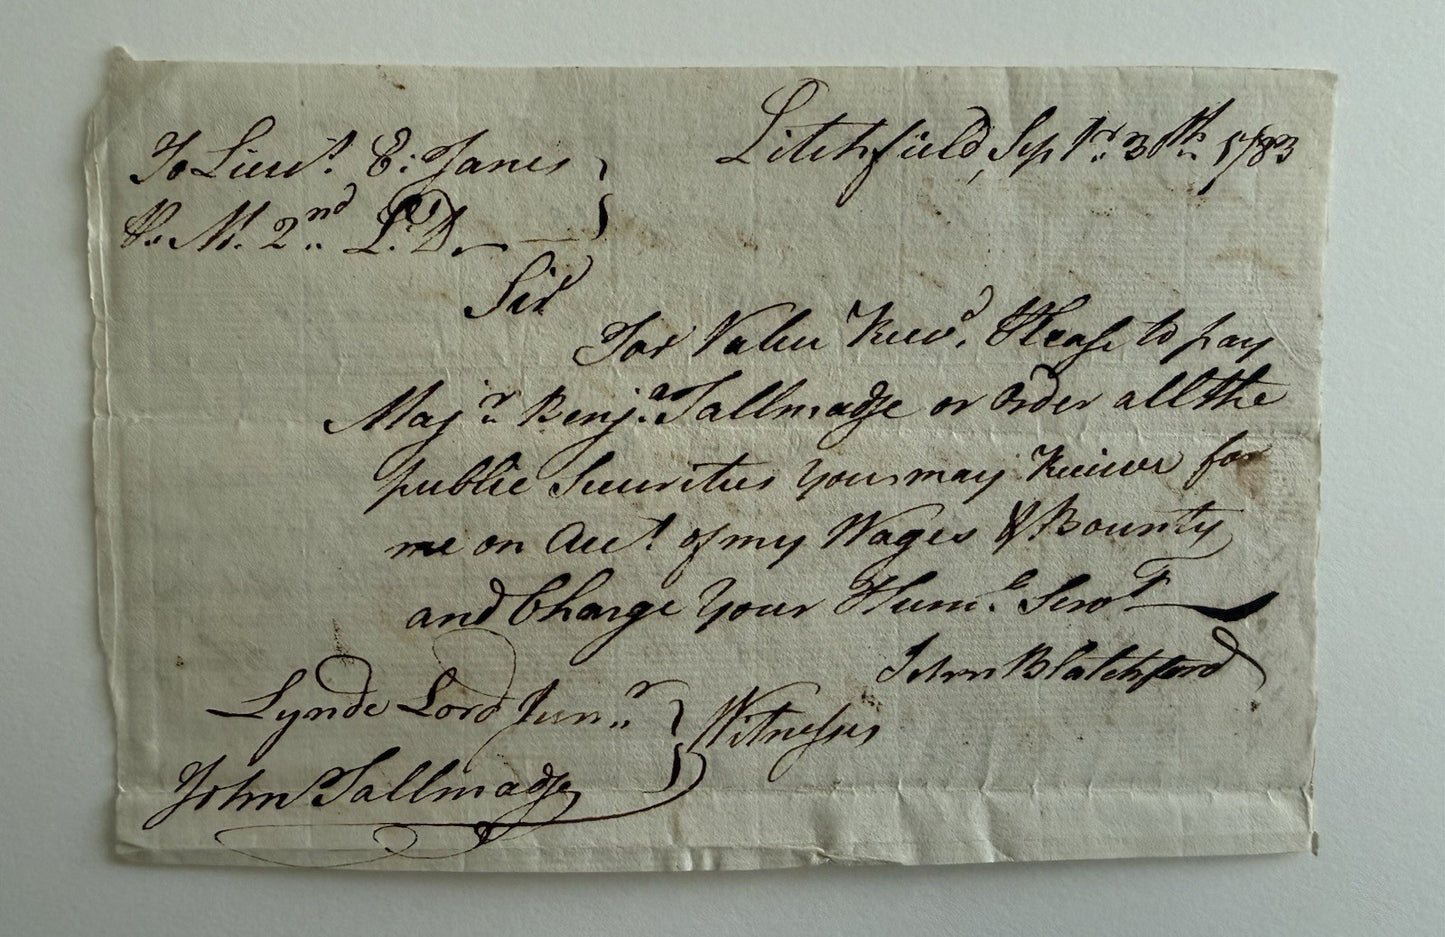 Litchfield, Sepr. 30th. 1783
To Lieut. E. Janes
P. M. 2nd. L. D.
Sir
For Value Recd. Please to pay
Majr. Benja. Tallmadge or Order all the
public Securities you may Receive for
me on Acct. of my Wages & Bounty
and Charge Your Hume. Servt
John Blatchford
Lynde Lord Junr. Witnesses
John Tallmadge